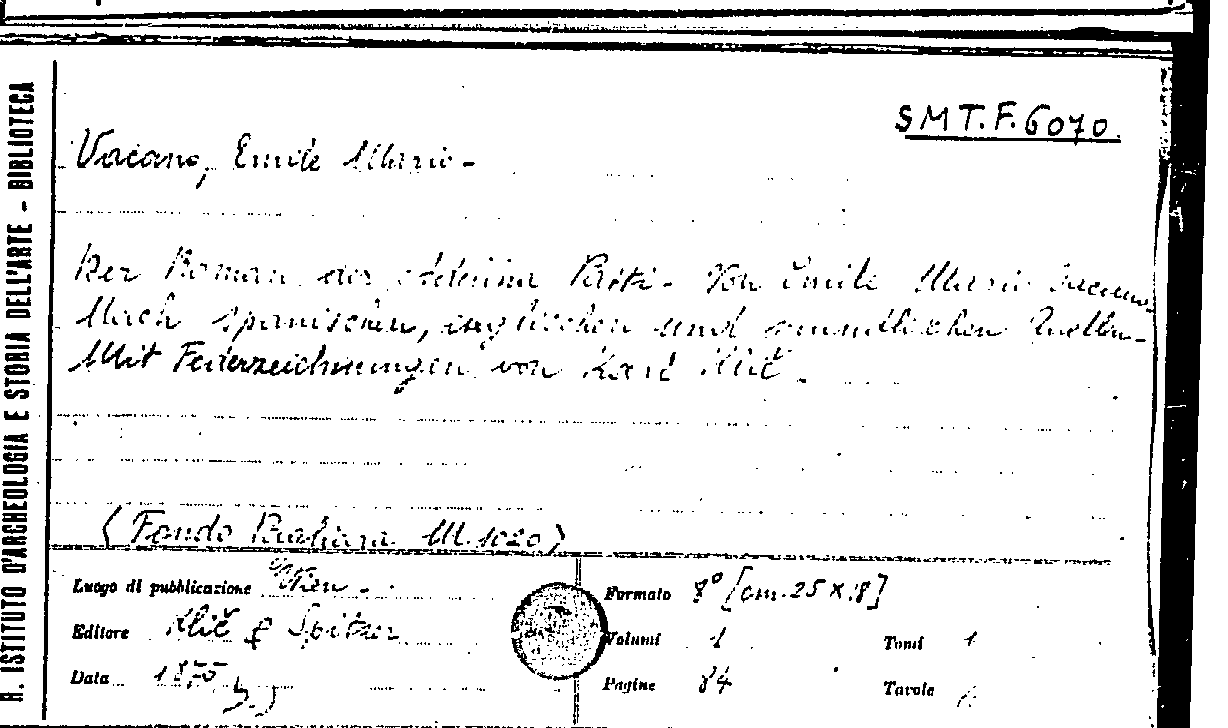 R. ISTITUTO D'ARCHEOLOGIA E STORIA DELL'ARTE - BIBLIOTECA
SMT.F.6070.
Vacano, Emile Mario -
Der Roman der Adelina Patti - Von Emile Mario Vacano.
Nach spanischen, englischen und mundlichen Quellen -
Mit Federzeichnungen von Karl Klič.
(Fondo M.1020)
Luogo di pubblicazione Wien.
Editore Klič & Spitzer
Data 1875
Formato 8° [cm. 25 x 18]
Volumi 1
Tomi 1
Pagine 84
Tavole